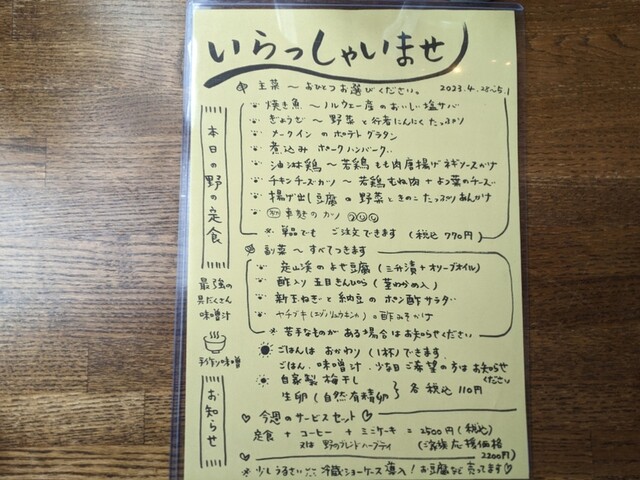 いらっしゃいませ
主菜 〜 おひとつお選びください。 2023.4.28〜5.1
本日の野の定食
焼き魚 〜 ノルウェー産のおいしい塩サバ
ぎょうざ 〜 野菜と行者にんにくたっぷり
メークインのポテトグラタン
煮込みポークハンバーグ
油淋鶏 〜 若鶏もも肉唐揚げネギソースがけ
チキンチーズカツ 〜 若鶏むね肉 + よつ葉のチーズ
揚げ出し豆腐の野菜ときのこたっぷりあんかけ
※ 単品でも ご注文できます (税込 770円)
副菜 〜 すべてつきます
定山渓のよせ豆腐 (三升漬 + オリーブオイル)
酢入り五目きんぴら (茎わかめ入)
新玉ねぎと納豆のポン酢サラダ
※ 苦手なものがある場合はお知らせください
最強の
具だくさん
味噌汁
手作り味噌
ごはんは おかわり (1杯) できます
ごはん、味噌汁 少な目ご希望の方はお知らせ
ください
自家製梅干し
生卵 (自然有精卵) 各税込 110円
お知らせ
今週のサービスセット
定食 + コーヒー + ミニケーキ = 2500円 (税込)
又は 野のブレンドハーブティ (ご家族応援価格
2200円)
※ 少しうるさい 冷蔵ショーケース導入! お豆腐など売ってます